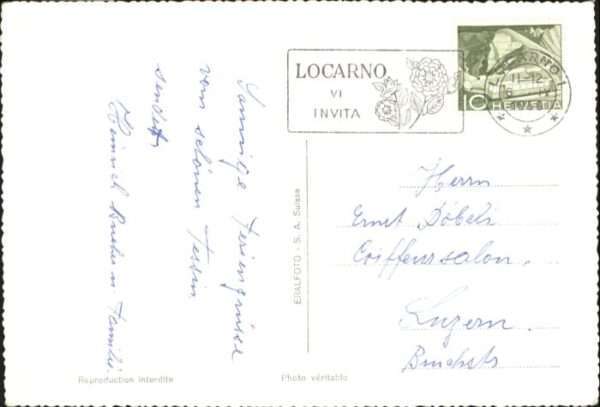 LOCARNO
VI
INVITA
LOCARNO 1
11-12
IV
10 HELVETIA
Sonnige Feriengrüsse
vom schönen Tessin
sendet
Heinrich u Familie
ERALFOTO - S. A. Suisse
Herrn
Ernst Döbeli
Coiffeursalon,
Luzern
Reproduction interdite
Photo véritable